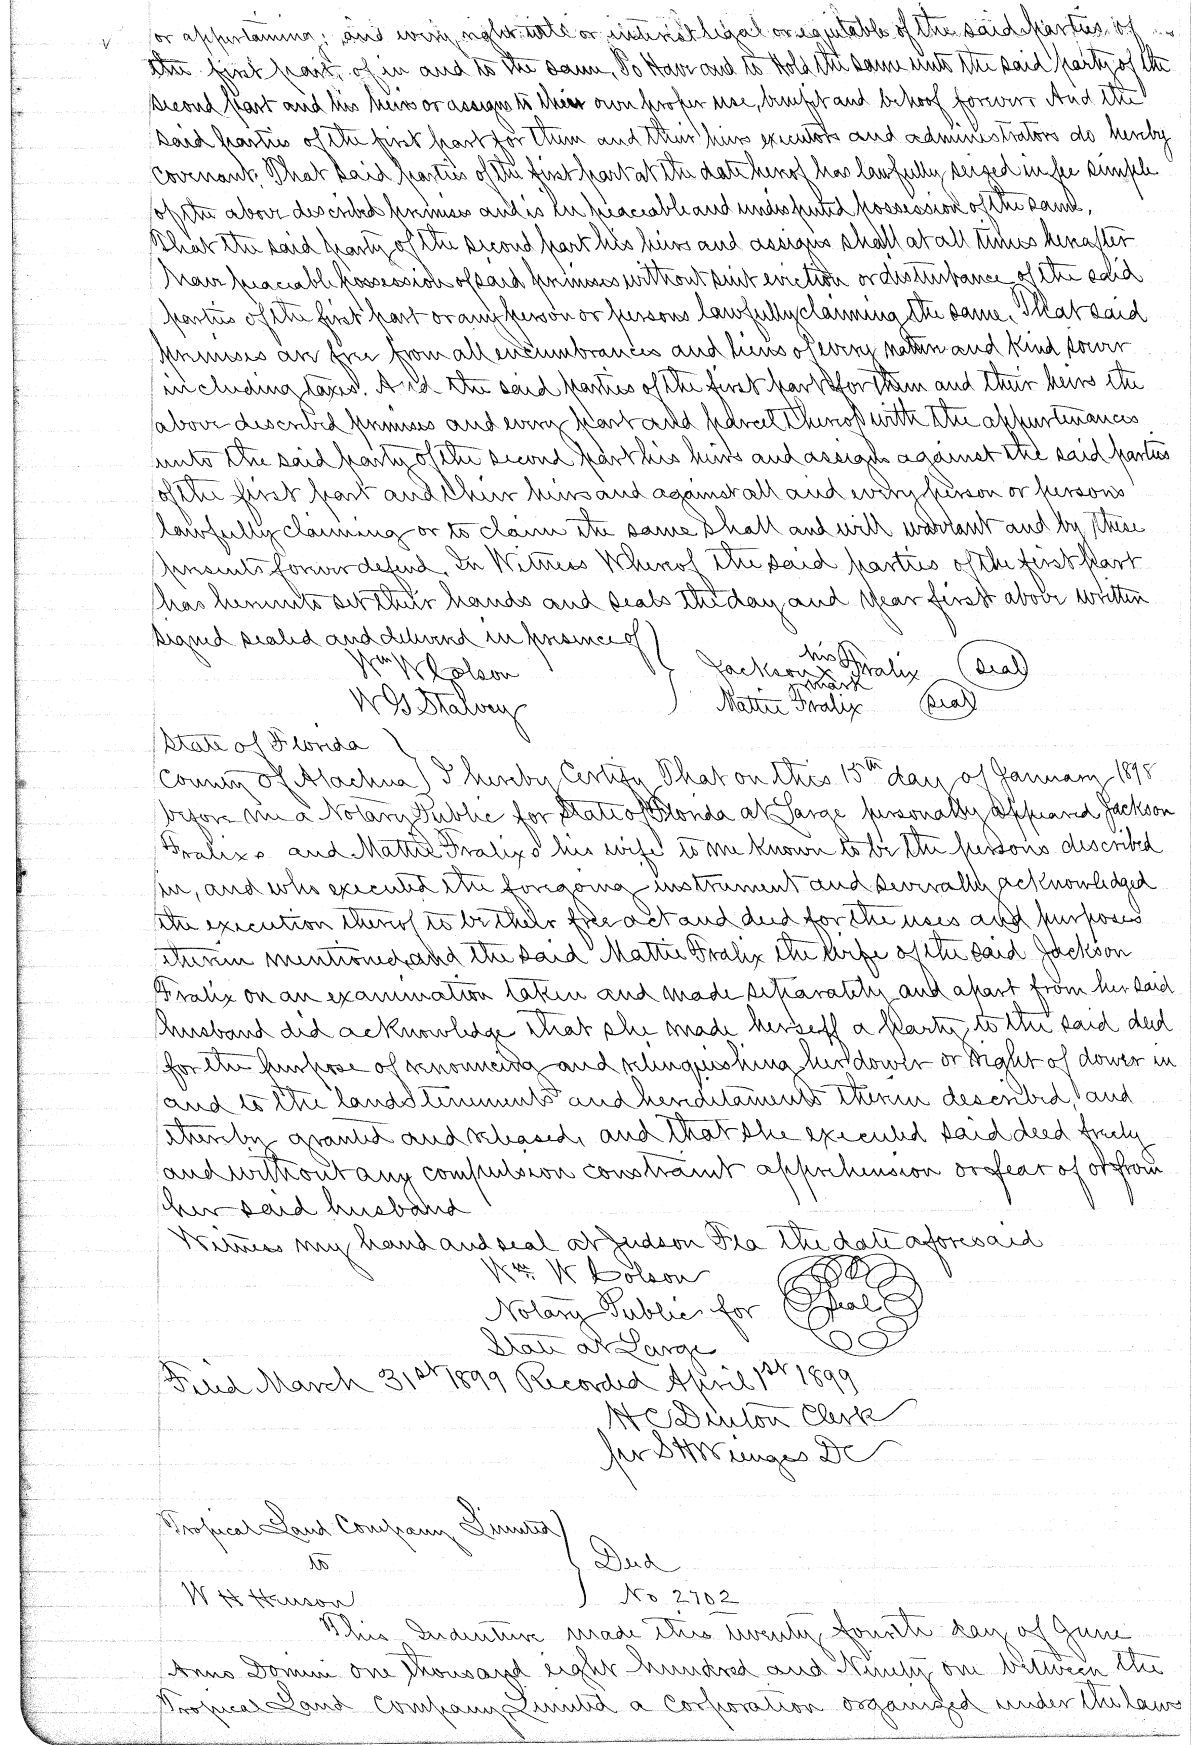 or appertaining; and every right title or interest legal or equitable of the said parties of
the first part, of in and to the same, To Have and to Hold the same unto the said party of the
second part and his heirs or assigns to their own proper use, benefit and behoof forever And the
said parties of the first part for them and their heirs executors and administrators do hereby
covenant, That said parties of the first part at the date hereof has lawfully seized in fee simple
of the above described premises and is in peaceable and undisputed possession of the same,
That the said party of the second part his heirs and assigns shall at all times hereafter
have peaceable possession of said premises without suit eviction or disturbance of the said
parties of the first part or any person or persons lawfully claiming the same, That said
premises are free from all encumbrances and liens of every nature and kind soever
including taxes. And the said parties of the first part for them and their heirs the
above described premises and every part and parcel thereof with the appurtenances
unto the said party of the second part his heirs and assigns against the said parties
of the first part and their heirs and against all and every person or persons
lawfully claiming or to claim the same shall and will warrant and by these
presents forever defend, In Witness Whereof the said parties of the first part
has hereunto set their hands and seals the day and year first above written
signed sealed and delivered in presence of
Wm W Colson
W G Stalvey
his
Jackson x Fralix Seal
mark
Mattie Fralix Seal
State of Florida
County of Alachua I hereby Certify That on this 15th day of January 1898
before me a Notary Public for State of Florida at Large personally appeared Jackson
Fralix and Mattie Fralix his wife to me known to be the persons described
in, and who executed the foregoing instrument and severally acknowledged
the execution thereof to be their free act and deed for the uses and purposes
therein mentioned, and the said Mattie Fralix the wife of the said Jackson
Fralix on an examination taken and made separately and apart from her said
husband did acknowledge that she made herself a party to the said deed
for the purpose of renouncing and relinquishing her dower or right of dower in
and to the lands tenements and hereditaments therein described, and
thereby granted and released, and that she executed said deed freely
and without any compulsion constraint apprehension or fear of or from
her said husband
Witness my hand and seal at Judson Fla the date aforesaid
Wm W Colson
Notary Public for Seal
State at Large
Filed March 31st 1899 Recorded April 1st 1899
H C Denton Clerk
per S H Wienges DC
Tropical Land Company Limited
to
Deed
W H Henson
No 2702
This Indenture made this twenty fourth day of June
Anno Domini one thousand eight hundred and Ninety one between the
Tropical Land Company Limited a corporation organized under the laws